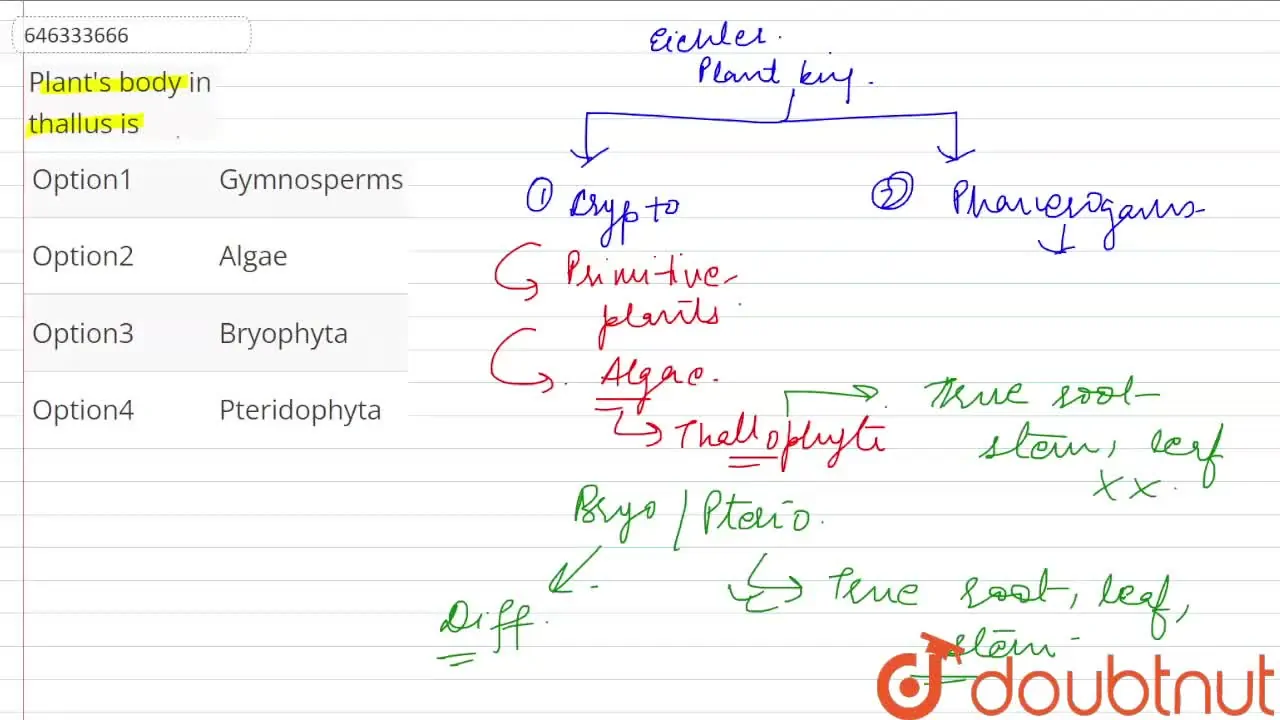 646333666
Plant's body in
thallus is
Option1 Gymnosperms
Option2 Algae
Option3 Bryophyta
Option4 Pteridophyta
Eichler.
Plant king.
① Crypto
② Phanerogams
Primitive
plants
Algae.
Thallophyte
True root
stem, leaf
XX.
Bryo / Pterio.
Diff.
True root, leaf,
stem
doubtnut